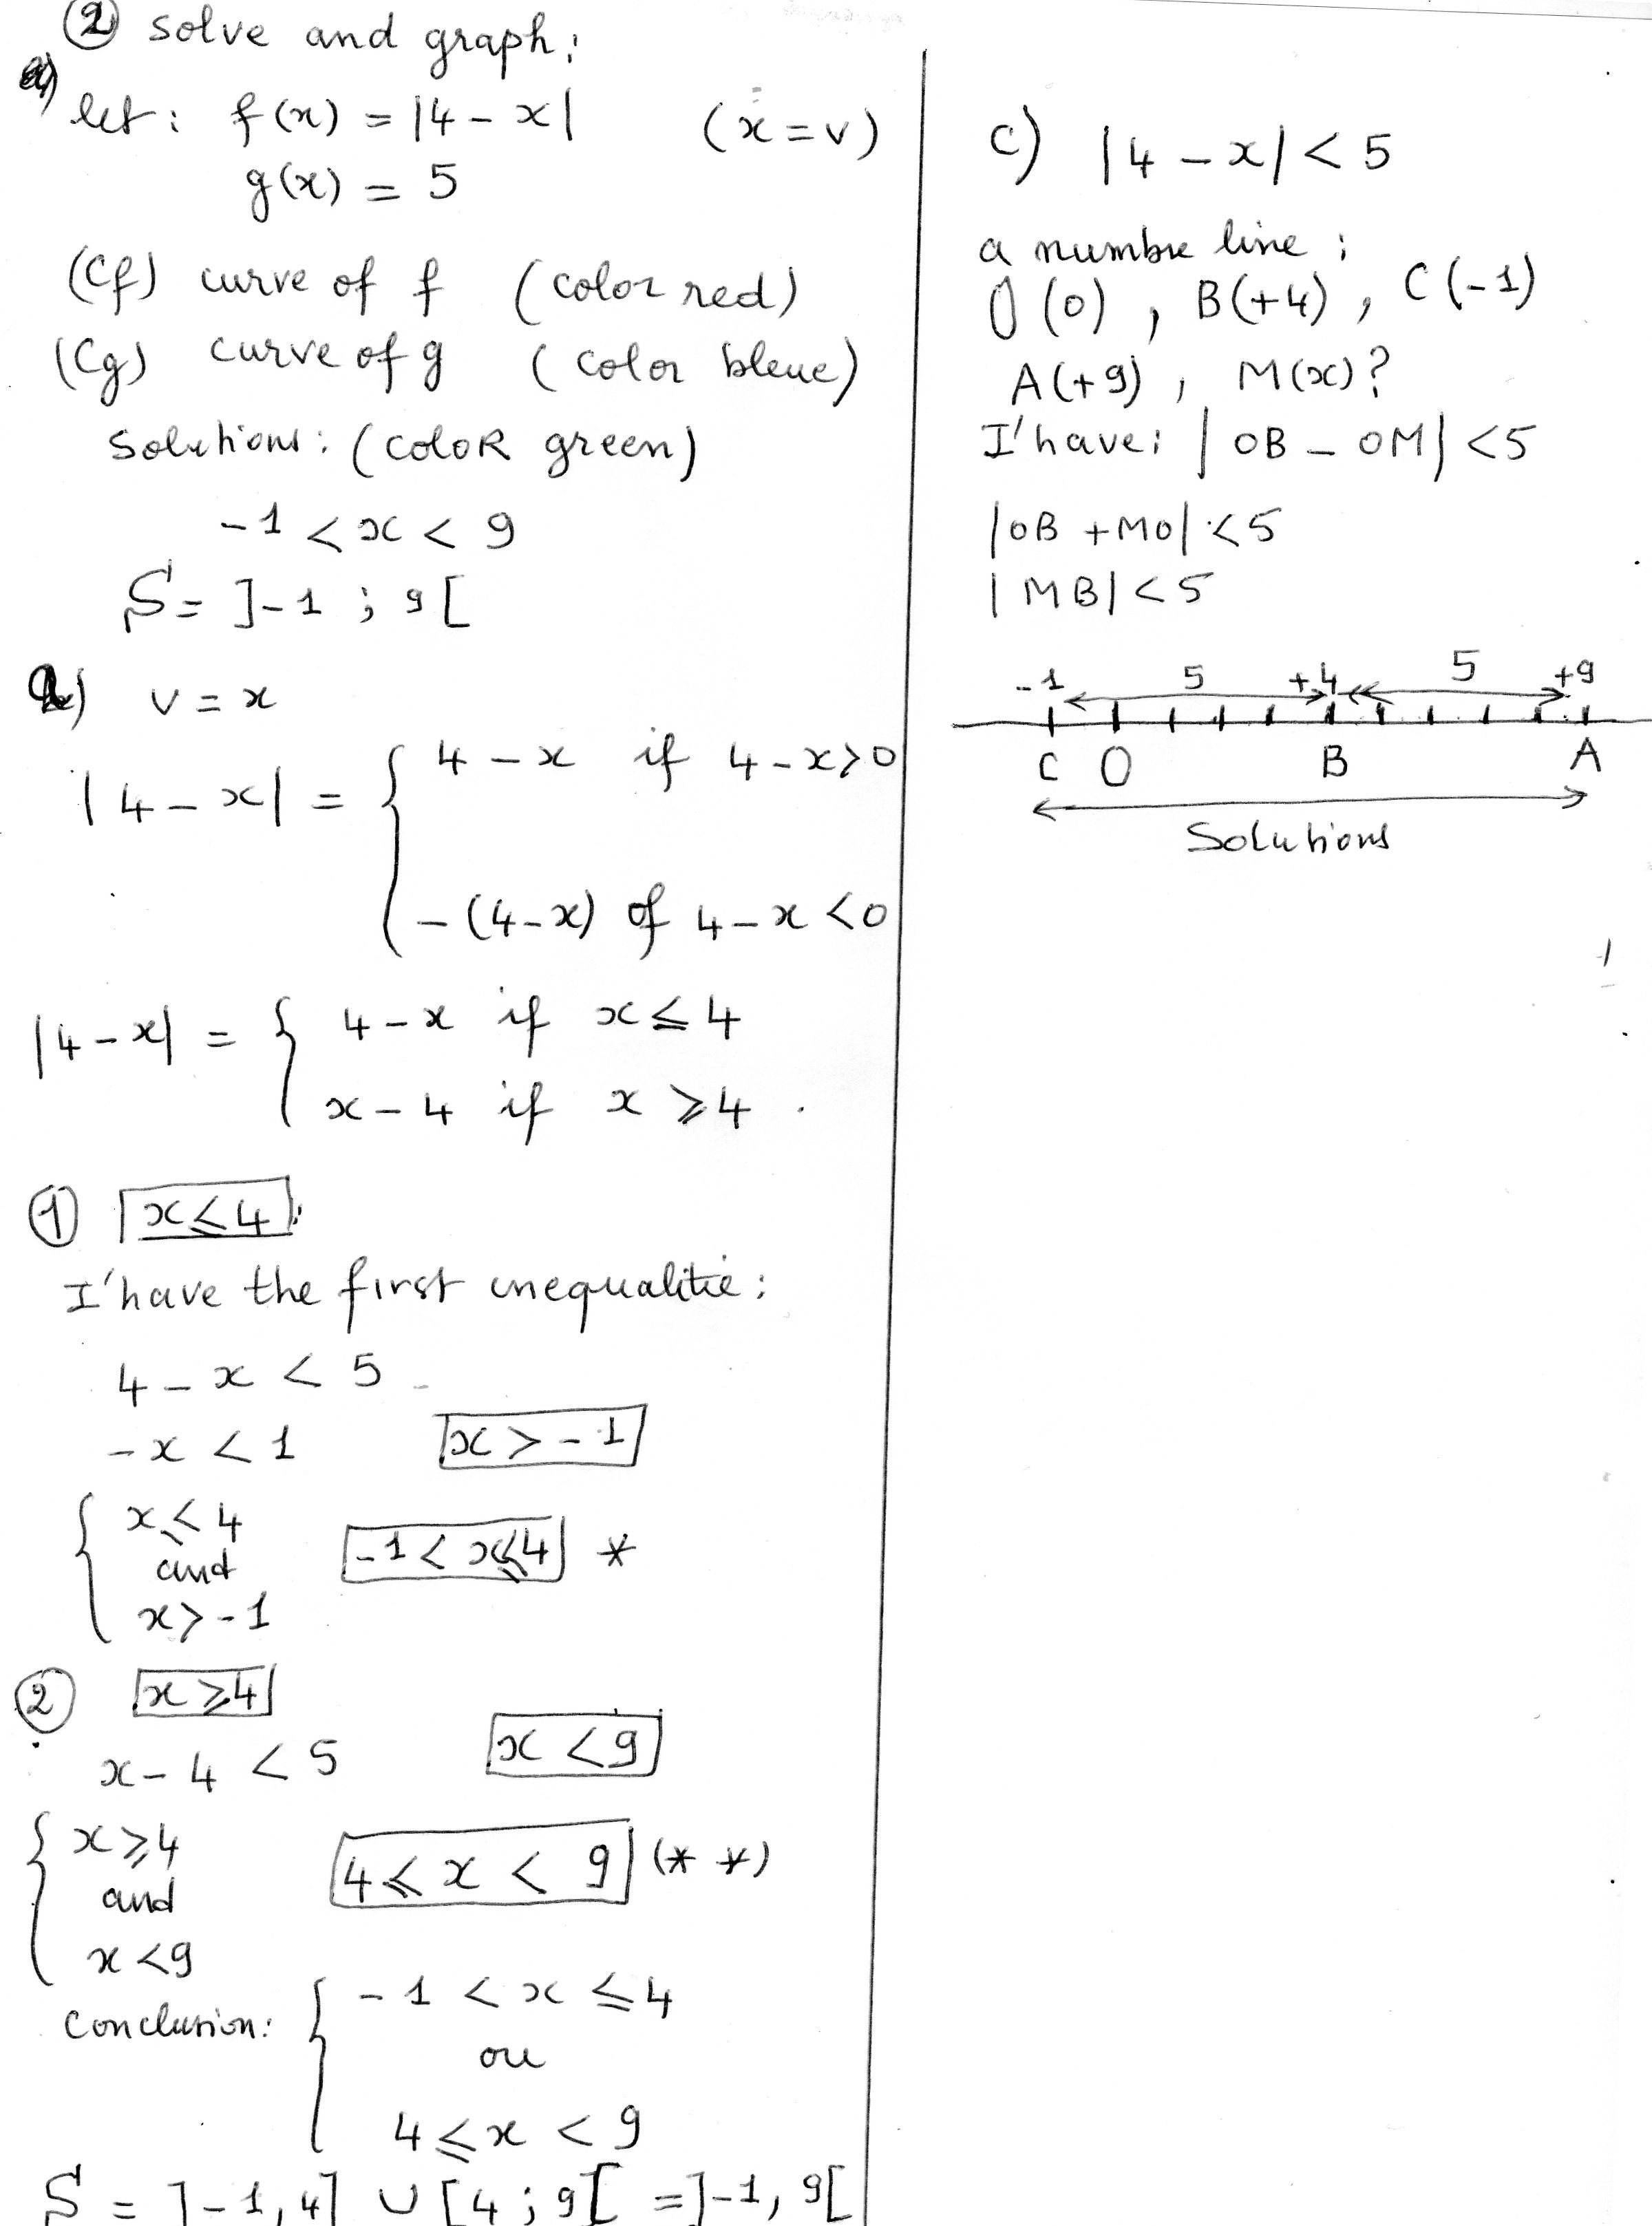 ② solve and graph:
a) let: f(x) = |4 - x| (x = v)
g(x) = 5
(Cf) curve of f (color red)
(Cg) curve of g (color bleue)
Solutions: (coloR green)
-1 < x < 9
S = ]-1 ; 9[
b) v = x
|4 - x| = { 4 - x if 4 - x > 0
-(4-x) of 4 - x < 0
|4 - x| = { 4 - x if x ≤ 4
x - 4 if x ≥ 4 .
① x ≤ 4 :
I'have the first inequalitie :
4 - x < 5
-x < 1 x > -1
{ x ≤ 4
and -1 < x ≤ 4 *
x > -1
② x ≥ 4
x - 4 < 5 x < 9
{ x ≥ 4
and 4 ≤ x < 9 (* *)
x < 9
Conclusion: { -1 < x ≤ 4
ou
4 ≤ x < 9
S = ]-1, 4] ∪ [4 ; 9[ = ]-1, 9[
c) |4 - x| < 5
a numbre line :
O (0) , B(+4) , C(-1)
A(+9) , M(x)?
I'have: |OB - OM| < 5
|OB + MO| < 5
|MB| < 5
-1 5 +4 5 +9
C O B A
Solutions